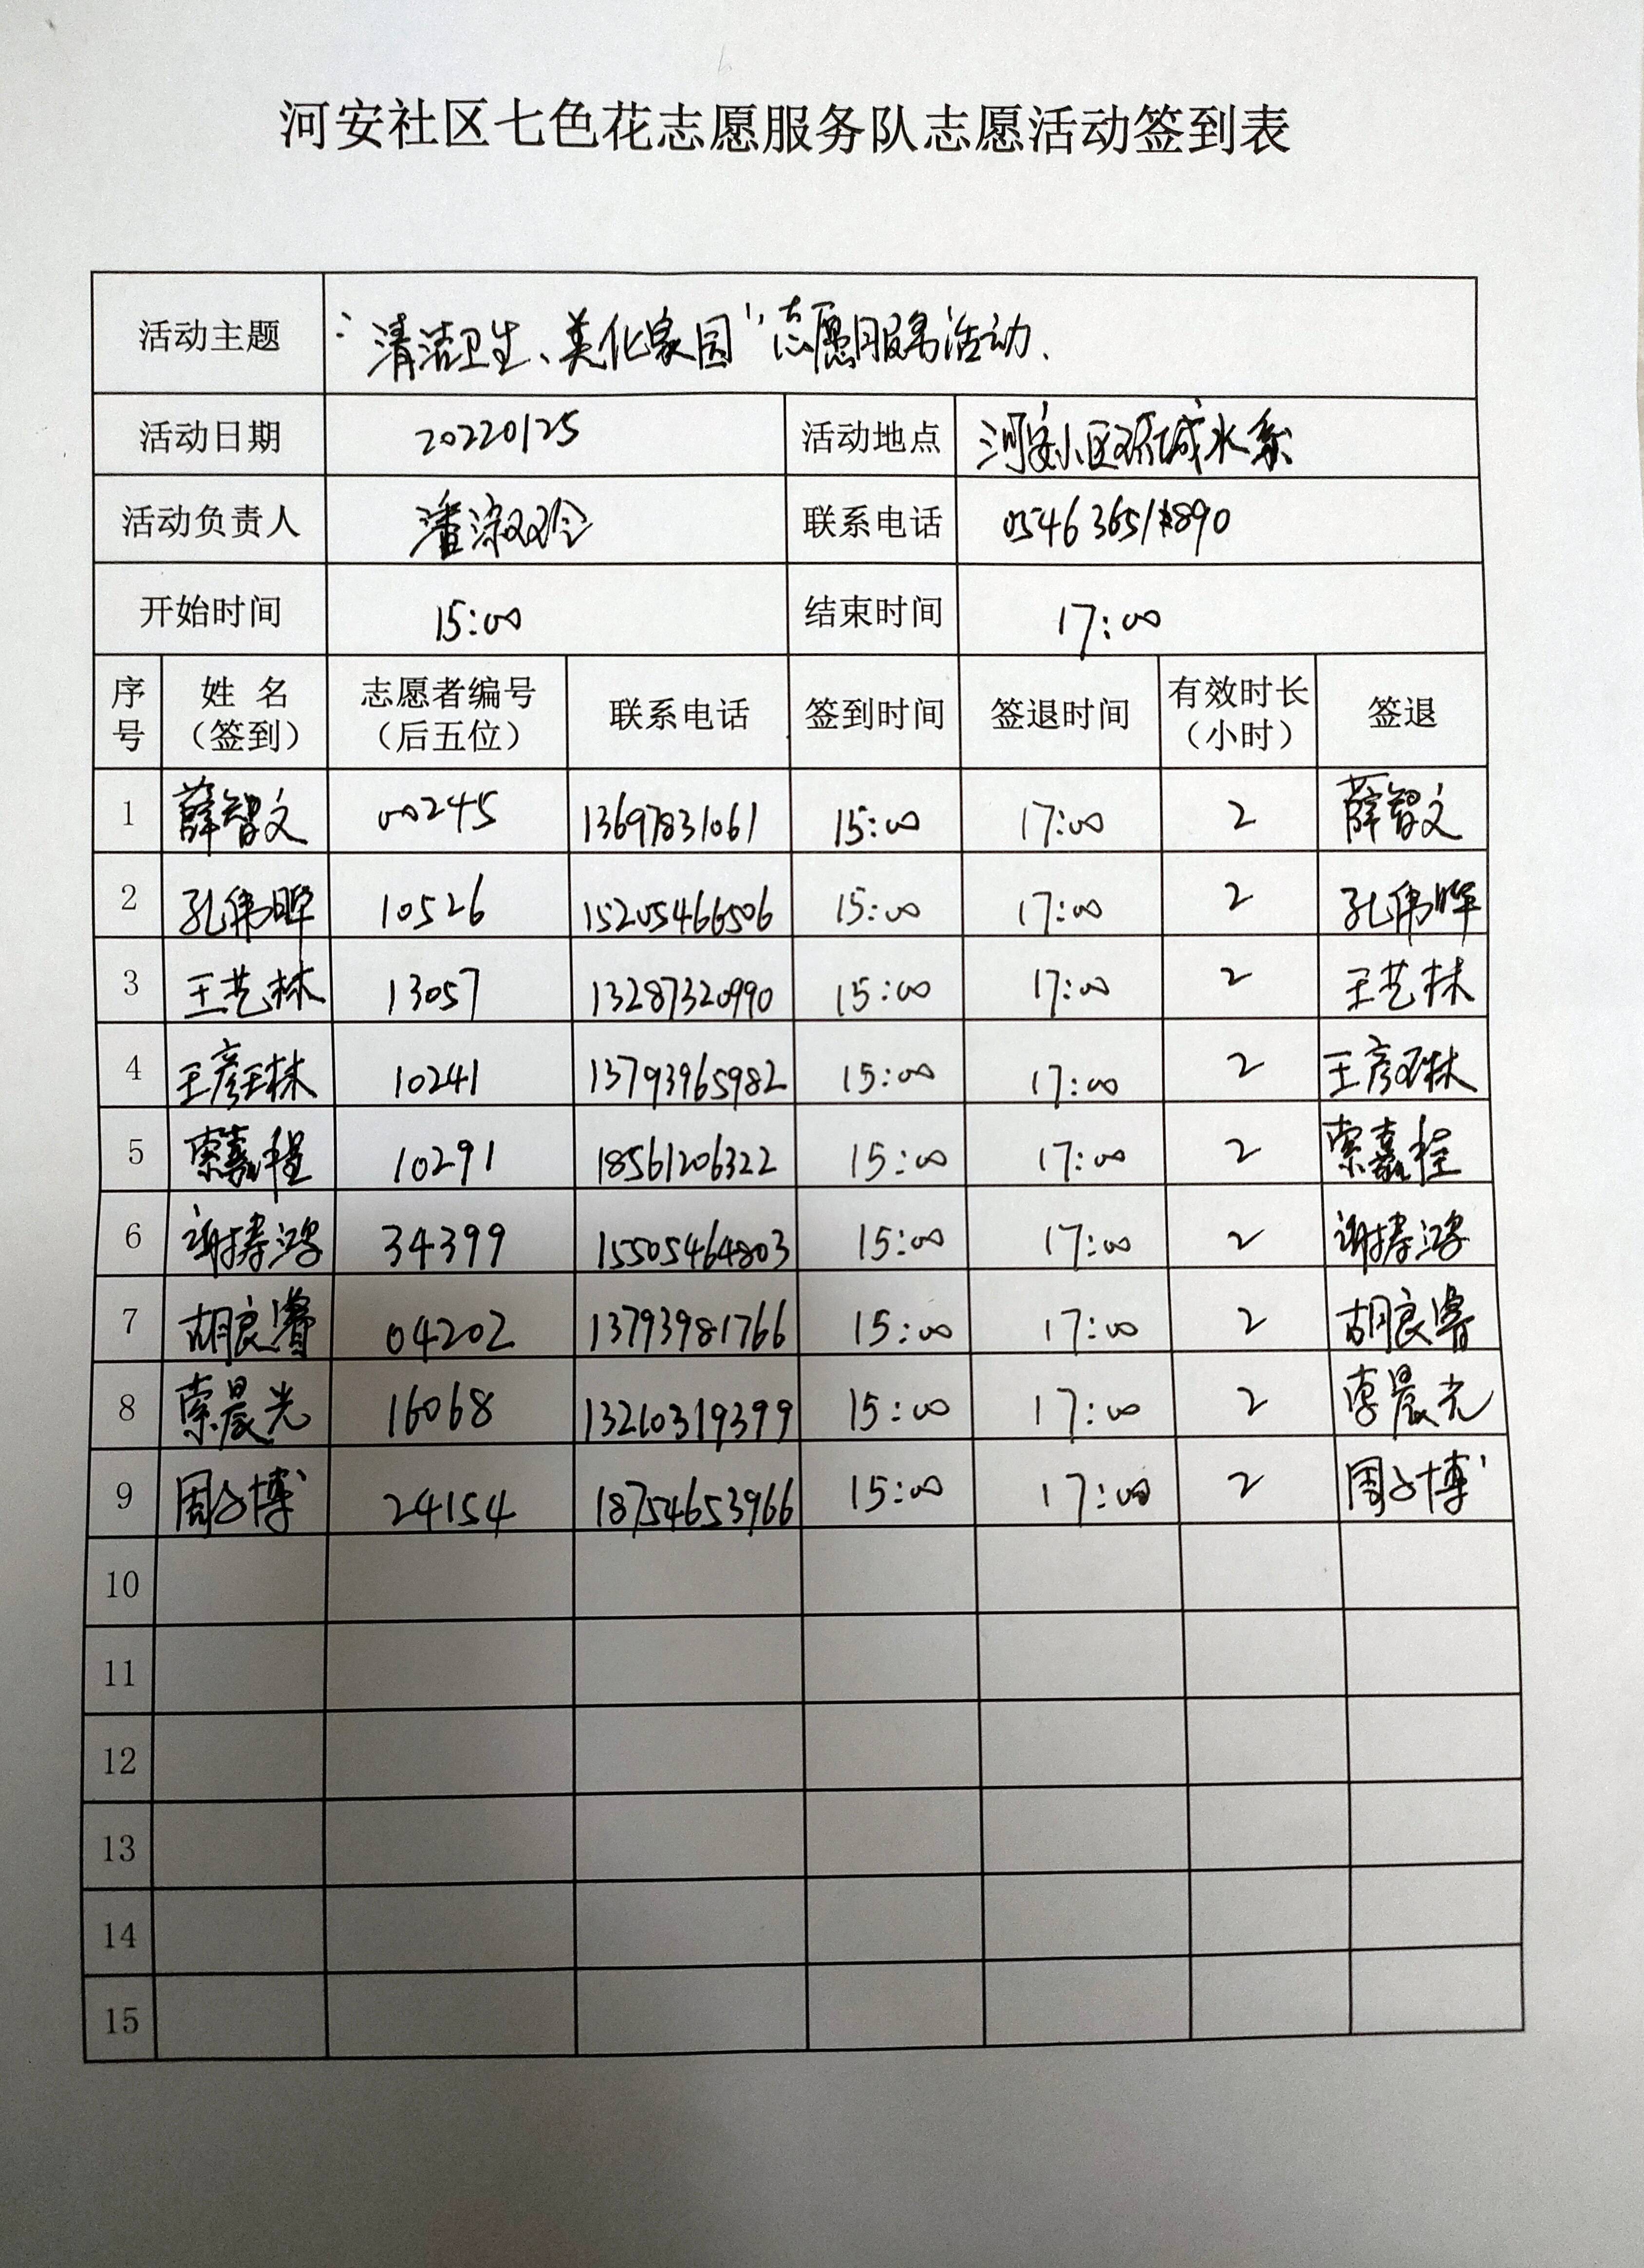 河安社区七色花志愿服务队志愿活动签到表
活动主题 “清洁卫生、美化家园”志愿服务活动.
活动日期 20220125 活动地点 河安小区环城水系
活动负责人 潘淑玲 联系电话 0546 3651890
开始时间 15:00 结束时间 17:00
序号 姓 名（签到） 志愿者编号（后五位） 联系电话 签到时间 签退时间 有效时长（小时） 签退
1 薛智文 00245 13697831061 15:00 17:00 2 薛智文
2 孔伟晔 10526 15205466506 15:00 17:00 2 孔伟晔
3 王艺林 13057 13287320990 15:00 17:00 2 王艺林
4 王彦琳 10241 13793965982 15:00 17:00 2 王彦琳
5 索嘉程 10291 18561206322 15:00 17:00 2 索嘉程
6 谢涛鸿 34399 15505464803 15:00 17:00 2 谢涛鸿
7 胡良睿 04202 13793981766 15:00 17:00 2 胡良睿
8 索晨光 16068 13210319399 15:00 17:00 2 索晨光
9 周子博 24154 18754653966 15:00 17:00 2 周子博
10
11
12
13
14
15